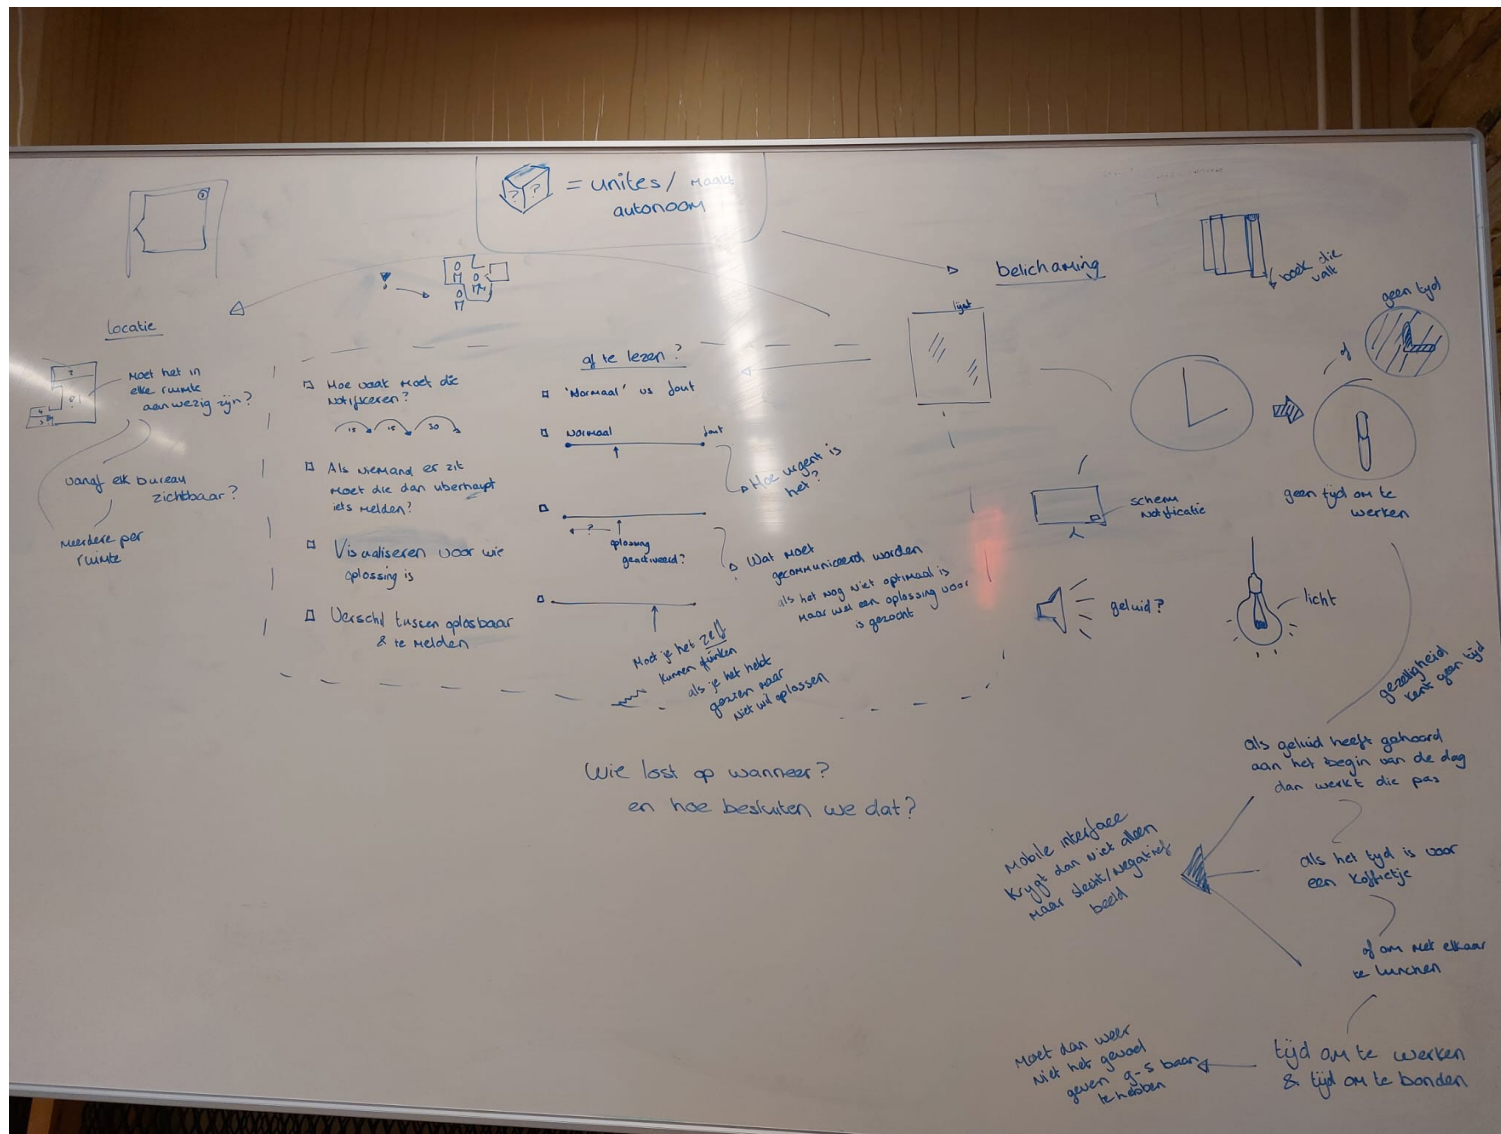 ? ?
= unites / maakt
autonoom
Locatie
Moet het in
elke ruimte
aanwezig zijn?
vanaf elk bureau
zichtbaar?
Meerdere per
ruimte
Hoe vaak moet die
notificeren?
15 15 30
Als niemand er zit
moet die dan uberhaupt
iets melden?
Visualiseren voor wie
oplossing is
Verschil tussen oplosbaar
& te melden
af te lezen?
'Normaal' vs fout
Normaal fout
Hoe urgent is
het?
?
oplossing
geactiveerd?
Wat moet
gecommuniceerd worden
als het nog niet optimaal is
maar wel een oplossing voor
is gezocht
Moet je het zelf
kunnen
als je het hebt
gezien maar
niet wil oplossen
Wie lost op wanneer?
en hoe besluiten we dat?
belichaming
lijst
boek die
valt
geen tijd
of
geen tijd om te
werken
scherm
notificatie
geluid?
licht
gezelligheid
kent geen tijd
als geluid heeft gehoord
aan het begin van de dag
dan werkt die pas
als het tijd is voor
een koffietje
of om met elkaar
te lunchen
tijd om te werken
& tijd om te bonden
Mobile interface
krijgt dan niet alleen
maar slecht/negatief
beeld
Moet dan weer
niet het gevoel
geven 9-5 baan
te hebben